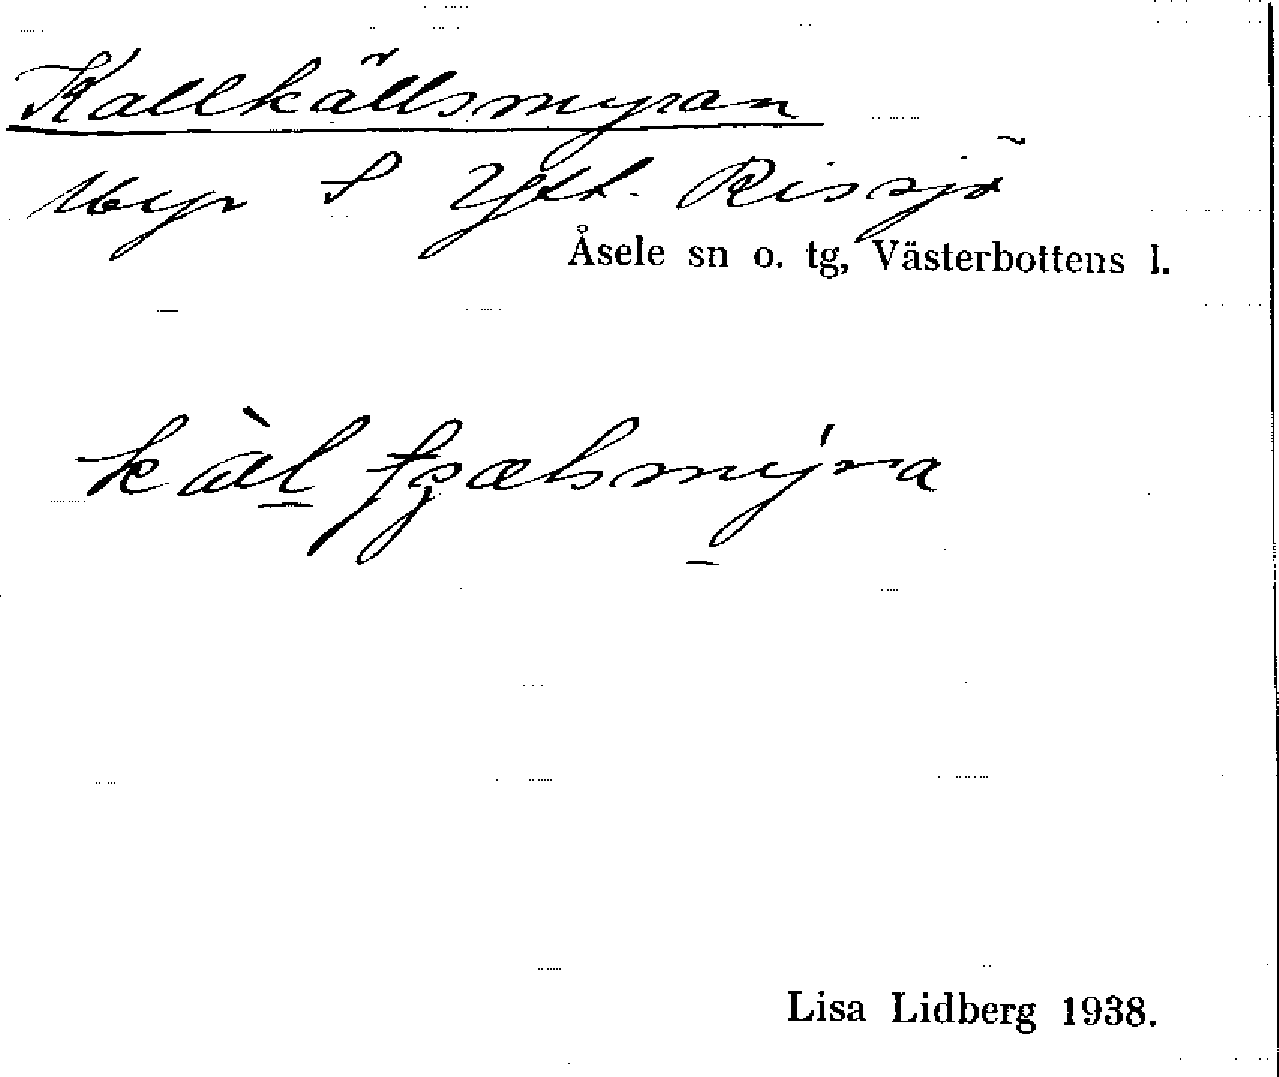 Kallkällsmyran
Myr S Ytt. Rissjö
Åsele sn o. tg, Västerbottens l.
Lisa Lidberg 1938.